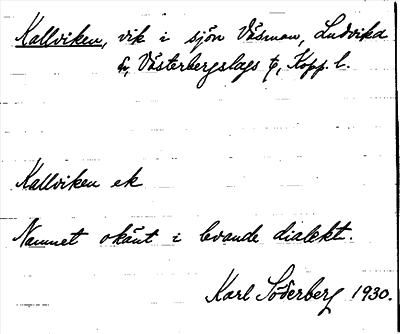 Kallviken, vik i sjön Väsman, Ludvika
s:n, Västerbergslags tg, Kopp. l.
Kallviken ek
Namnet okänt i levande dialekt.
Karl Söderberg 1930.